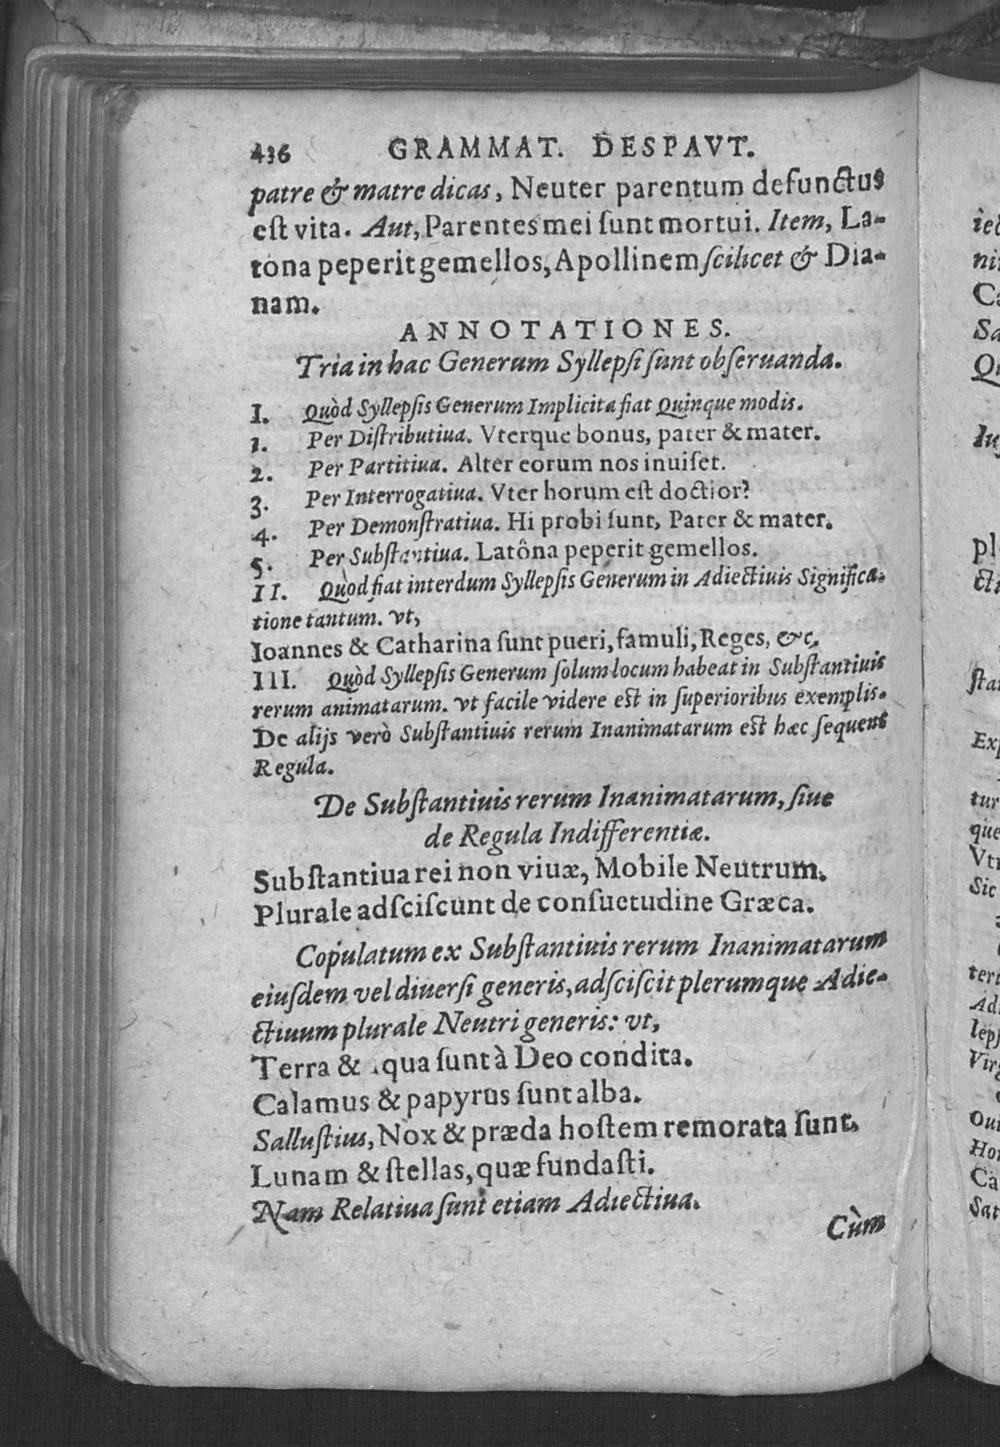 436 GRAMMAT. DESPAVT.
patre & matre dicas, Neuter parentum defunctus
est vita. Aut, Parentes mei sunt mortui. Item, La-
tona peperit gemellos, Apollinem scilicet & Dia-
nam.
ANNOTATIONES.
Tria in hac Generum Syllepsi sunt obseruanda.
I. Quòd Syllepsis Generum Implicita fiat Quinque modis.
1. Per Distributiua. Vterque bonus, pater & mater.
2. Per Partitiua. Alter eorum nos inuiset.
3. Per Interrogatiua. Vter horum est doctior?
4. Per Demonstratiua. Hi probi sunt, Pater & mater.
5. Per Substantiua. Latôna peperit gemellos.
II. Quòd fiat interdum Syllepsis Generum in Adiectiuis Significa-
tione tantum. vt,
Ioannes & Catharina sunt pueri, famuli, Reges, &c.
III. Quòd Syllepsis Generum solum locum habeat in Substantiuis
rerum animatarum. vt facile videre est in superioribus exemplis.
De alijs verò Substantiuis rerum Inanimatarum est hæc sequens
Regula.
De Substantiuis rerum Inanimatarum, siue
de Regula Indifferentiæ.
Substantiua rei non viuæ, Mobile Neutrum.
Plurale adsciscunt de consuetudine Græca.
Copulatum ex Substantiuis rerum Inanimatarum
eiusdem vel diuersi generis, adsciscit plerumque Adie-
ctiuum plurale Neutri generis: vt,
Terra & aqua sunt à Deo condita.
Calamus & papyrus sunt alba.
Sallustius, Nox & præda hostem remorata sunt.
Lunam & stellas, quæ fundasti.
Nam Relatiua sunt etiam Adiectiua.
Cùm